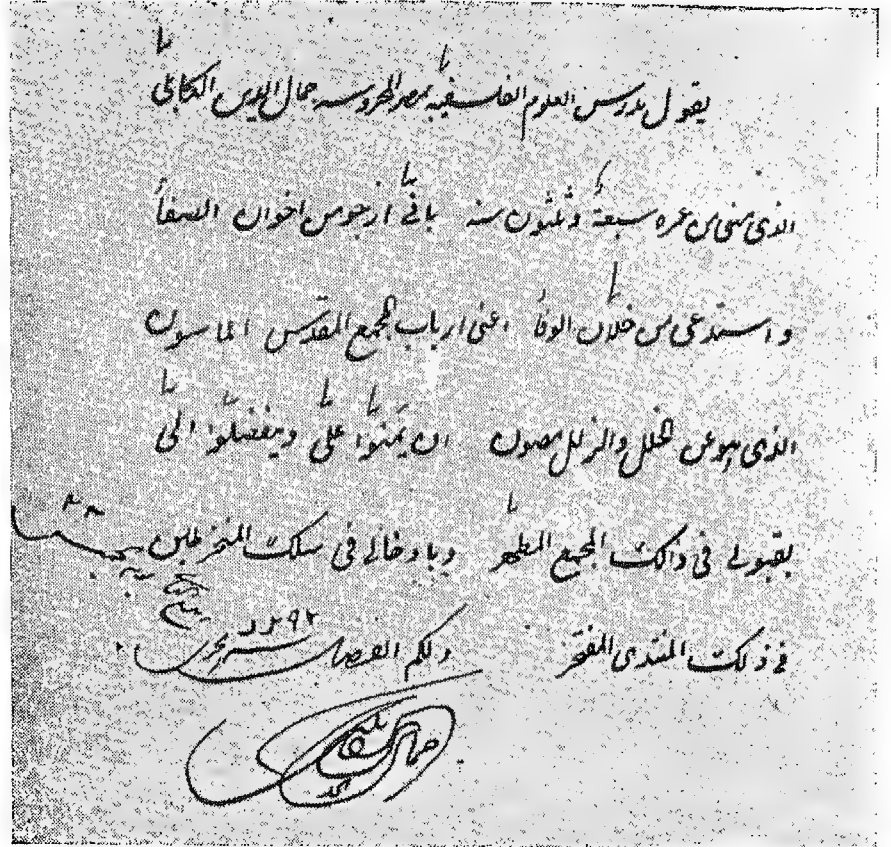 يقول مدرس العلوم الفلسفية بمصر المحروسة جمال الدين الكابلي
الذي مضى من عمره سبعة وثلثون سنة باني ارجو من اخوان الصفأ
واستدعى من خلان الوفأ اعنى ارباب المجمع المقدس الماسون
الذي هو عن الخلل والزلل مصون ان يمنوا على ويتفضلوا الى
بقبولى في ذالك المجمع المطهر وبادخالى في سلك المنخرطين
في ذلك المنتدى المفتخر ولكم الفضل
ربيع
١٢٩٢
جمال